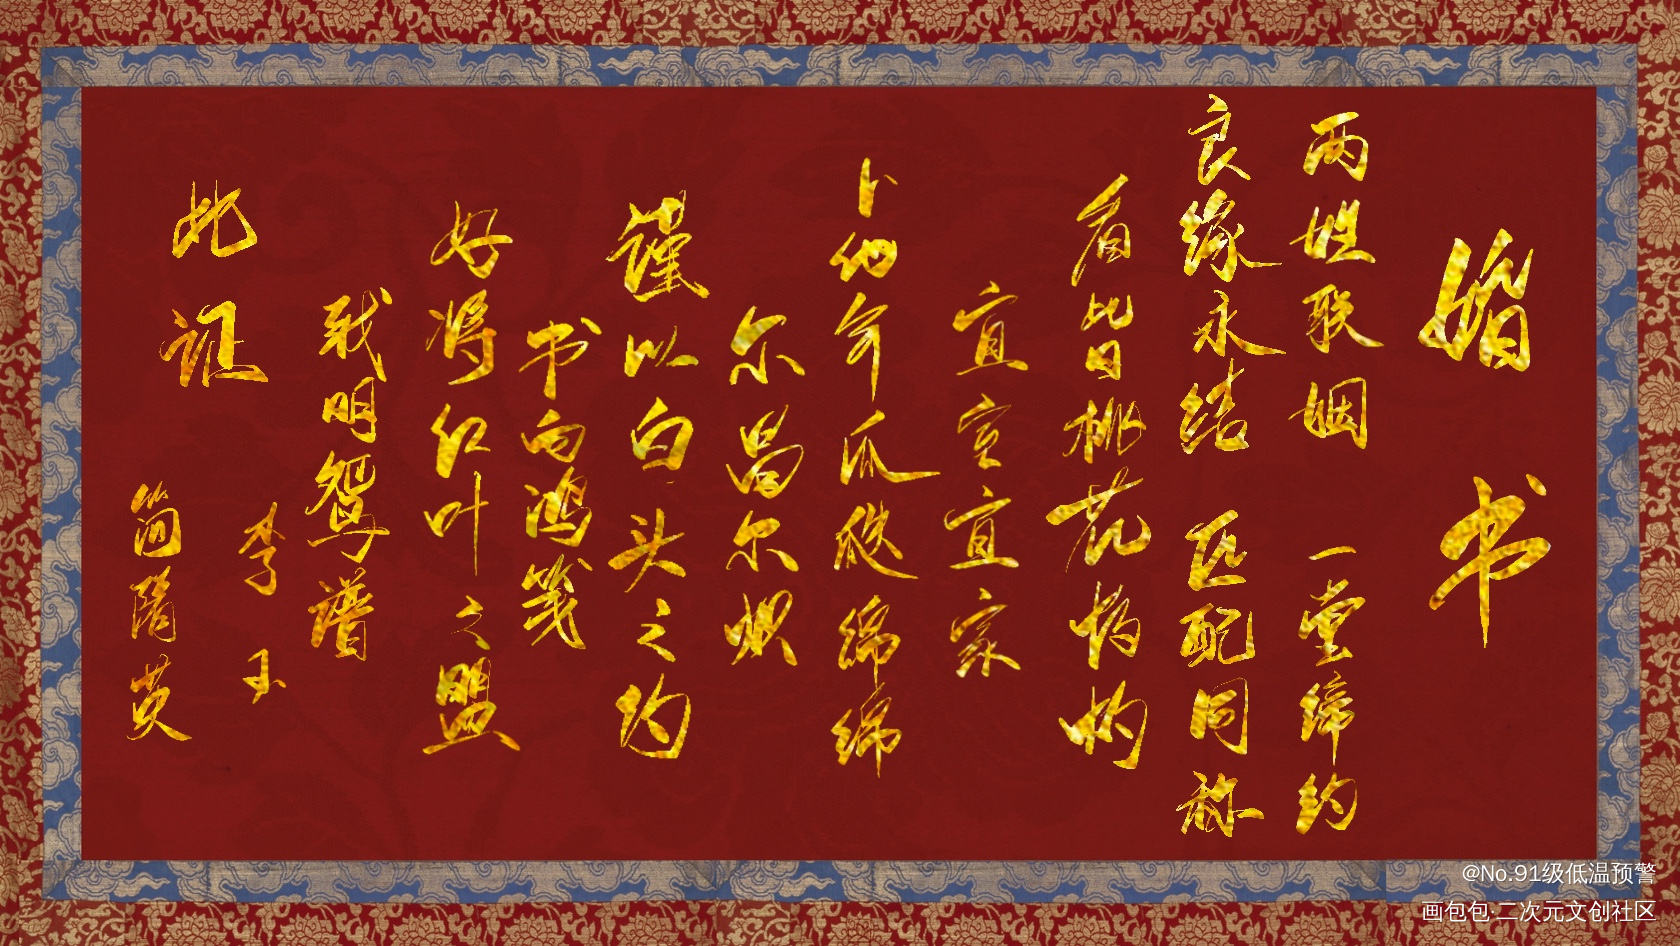 婚书
两姓联姻 一堂缔约
良缘永结 匹配同称
看此日桃花灼灼
宜室宜家
卜他年瓜瓞绵绵
尔昌尔炽
谨以白头之约
书向鸿笺
好将红叶之盟
载明鸳谱
此证
李玉
简隋英
@No.91级低温预警
画包包·二次元文创社区